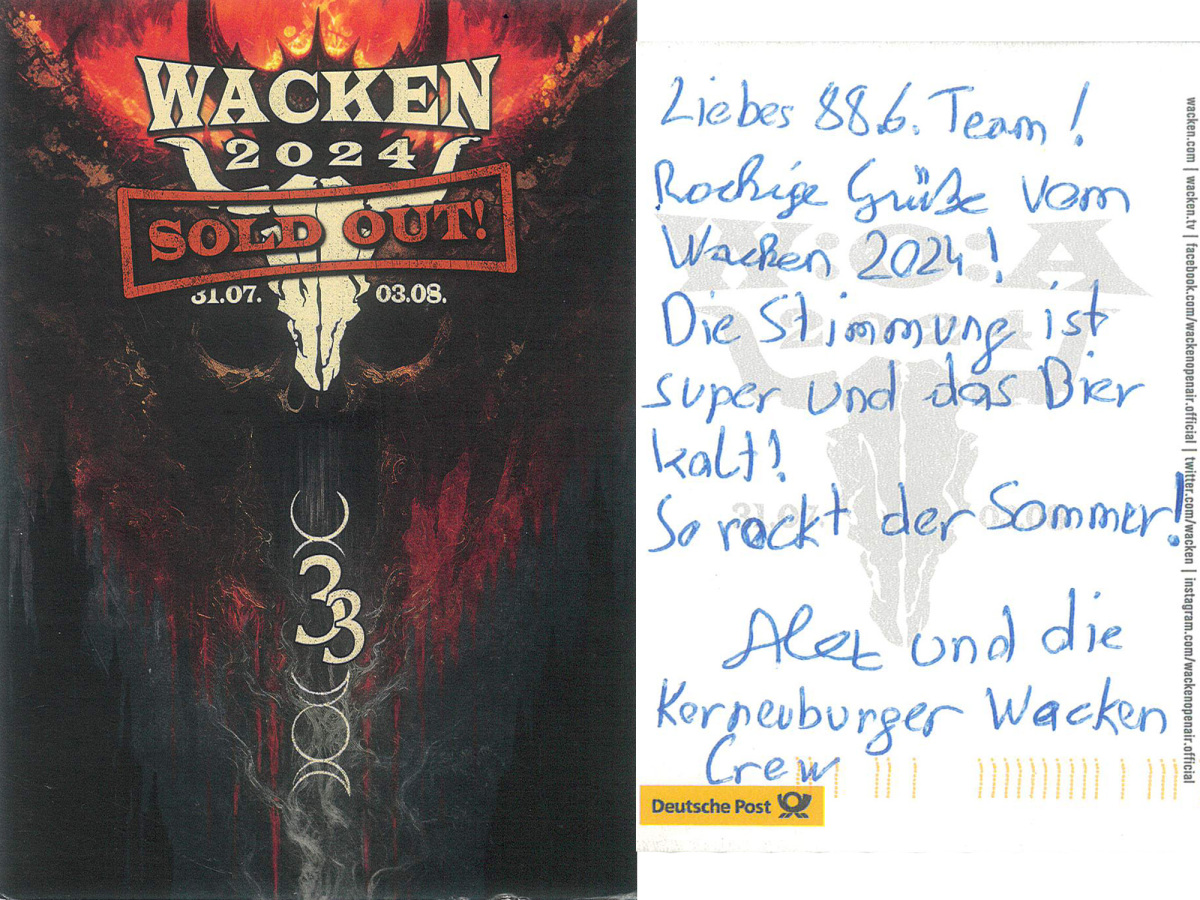 WACKEN
2024
SOLD OUT!
31.07. 03.08.
33
Liebes 88.6. Team!
Rockige Grüße vom
Wacken 2024!
Die Stimmung ist
super und das Bier
kalt!
So rockt der Sommer!
Alex und die
Korneuburger Wacken
Crew
Deutsche Post
W:O:A
2024
31.07.
wacken.com | wacken.tv | facebook.com/wackenopenair.official | twitter.com/wacken | instagram.com/wackenopenair.official